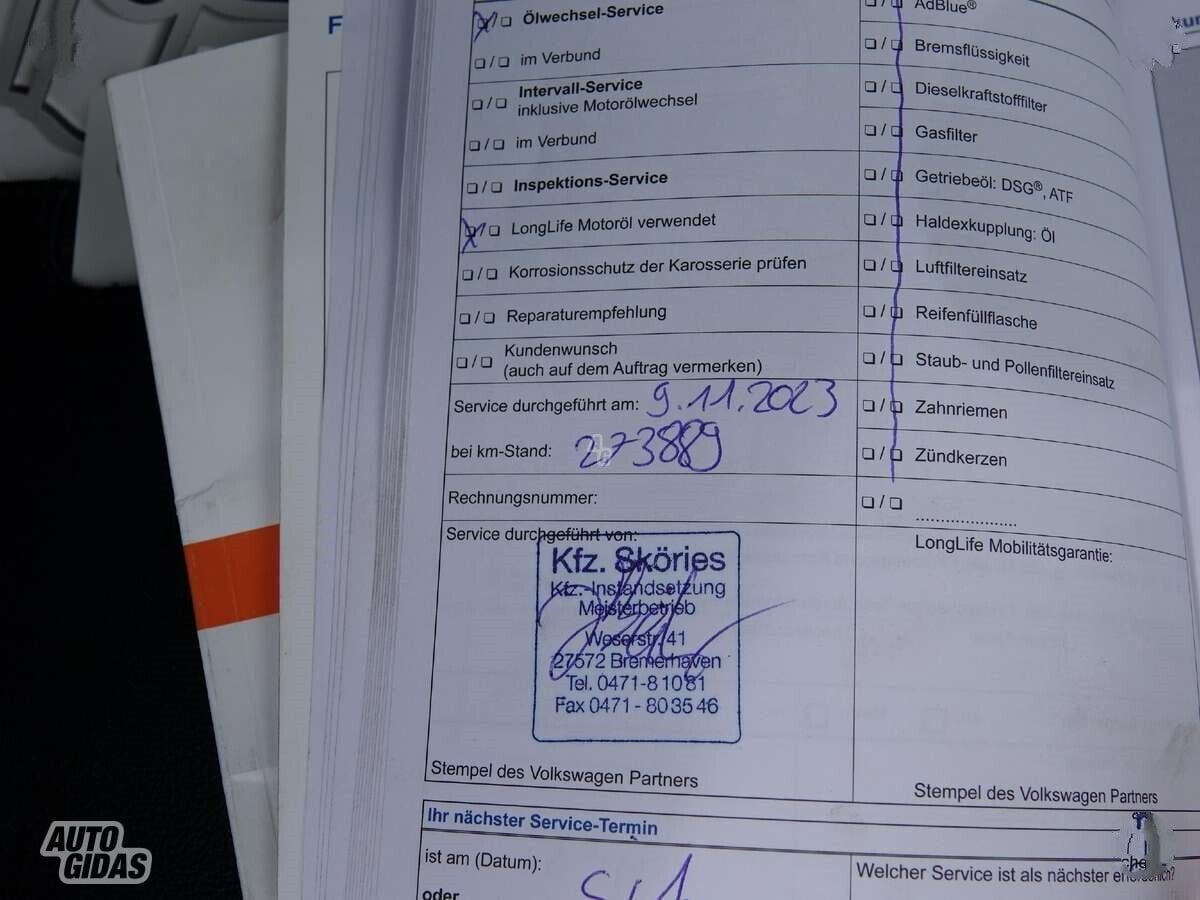 F
Ölwechsel-Service
im Verbund
Intervall-Service
inklusive Motorölwechsel
im Verbund
Inspektions-Service
LongLife Motoröl verwendet
Korrosionsschutz der Karosserie prüfen
Reparaturempfehlung
Kundenwunsch
(auch auf dem Auftrag vermerken)
Service durchgeführt am: 9.11.2023
bei km-Stand: 273889
Rechnungsnummer:
Service durchgeführt von:
Kfz. Sköries
Kfz.-Instandsetzung
Meisterbetrieb
Weserstr. 41
27572 Bremerhaven
Tel. 0471-8 10 81
Fax 0471 - 80 35 46
Stempel des Volkswagen Partners
AdBlue®
Bremsflüssigkeit
Dieselkraftstofffilter
Gasfilter
Getriebeöl: DSG®, ATF
Haldexkupplung: Öl
Luftfiltereinsatz
Reifenfüllflasche
Staub- und Pollenfiltereinsatz
Zahnriemen
Zündkerzen
.....................
LongLife Mobilitätsgarantie:
Stempel des Volkswagen Partners
Ihr nächster Service-Termin
ist am (Datum):
oder
Welcher Service ist als nächster
AUTO
GIDAS